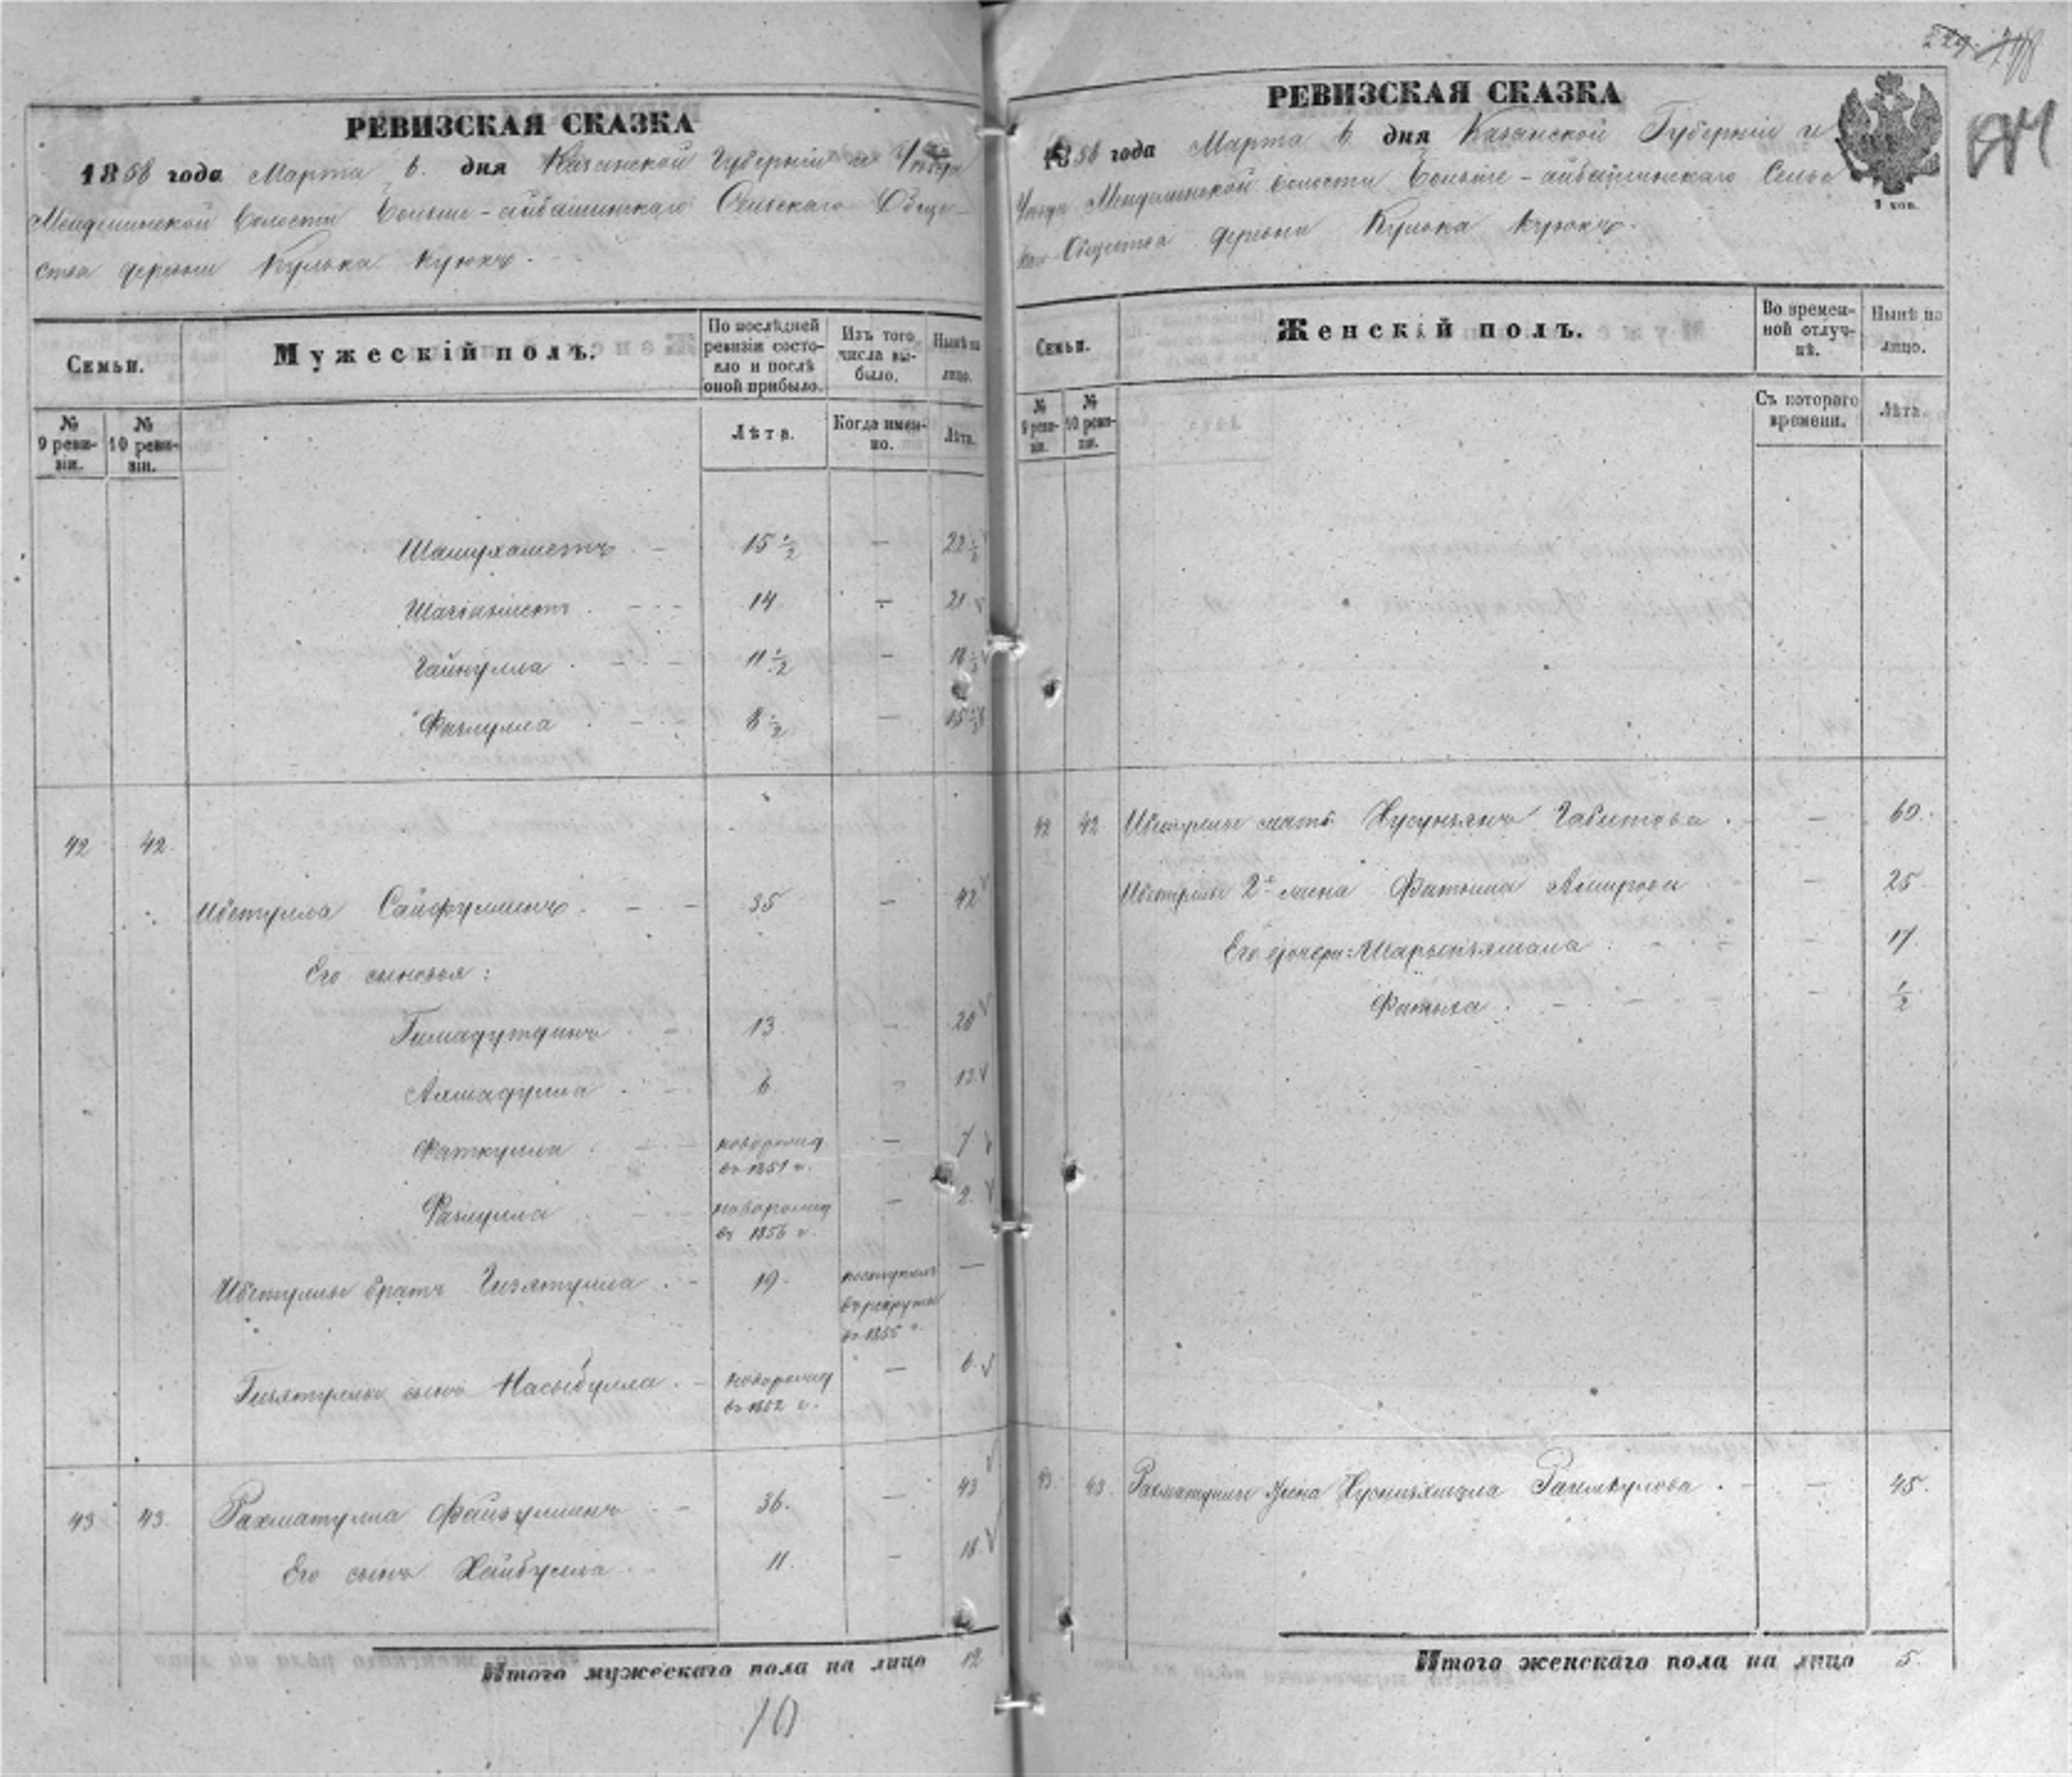 РЕВИЗСКАЯ СКАЗКА
1858 года Марта 6. дня Казанской Губерніи и Уезда
волости Больше-айбашинскаго Сельскаго Обще-
ства деревни Кулька Куюкъ.
Семьи.
Мужескій полъ.
По послѣдней ревизіи состояло и послѣ оной прибыло.
Изъ того числа выбыло.
Нынѣ на лицо.
№ 9 ревизіи.
№ 10 ревизіи.
Лѣта.
Когда именно.
Лѣта.
Шамухаметъ 15 1/2 — 22 1/2
14 — 21
Гайнулла 11 1/2 — 18 1/2
Фазлулла 8 1/2 — 15 1/2
42 42
Ибетулла Сайфуллинъ 35 — 42
Его сыновья:
Гимадутдинъ 13. — 20
6 — 13
Фаткулла новорожд. въ 1851 г. — 7
новорожд въ 1856 г. — 2
Ибетуллы братъ Гизятулла 19 поступилъ въ рекруты въ 1855 г. —
Гизятуллы сынъ Насыбулла новорожд въ 1852 г. — 6
43 43. Рахматулла Файзуллинъ 36. — 43
Его сынъ Хайбулла 11. — 18
Итого мужескаго пола на лицо 12
10
РЕВИЗСКАЯ СКАЗКА
1858 года Марта 6 дня Казанской Губерніи и
Уезда волости Больше-айбашинскаго Сельс
каго Общества деревни Кулька Куюкъ.
1 коп.
Семьи.
Женскій полъ.
Во временной отлучкѣ.
Нынѣ на лицо.
№ 9 ревизіи.
№ 10 ревизіи.
Съ котораго времени.
Лѣта.
42 42 Ибетуллы мать Хусунзянъ Габитова — 60.
Ибетуллы 2я жена Фатыма Амирова — 25
Его дочери: — 17
Фатыха — 1/2
43. 43. Рахматуллы жена Рахмкулова — 45.
Итого женскаго пола на лицо 5.